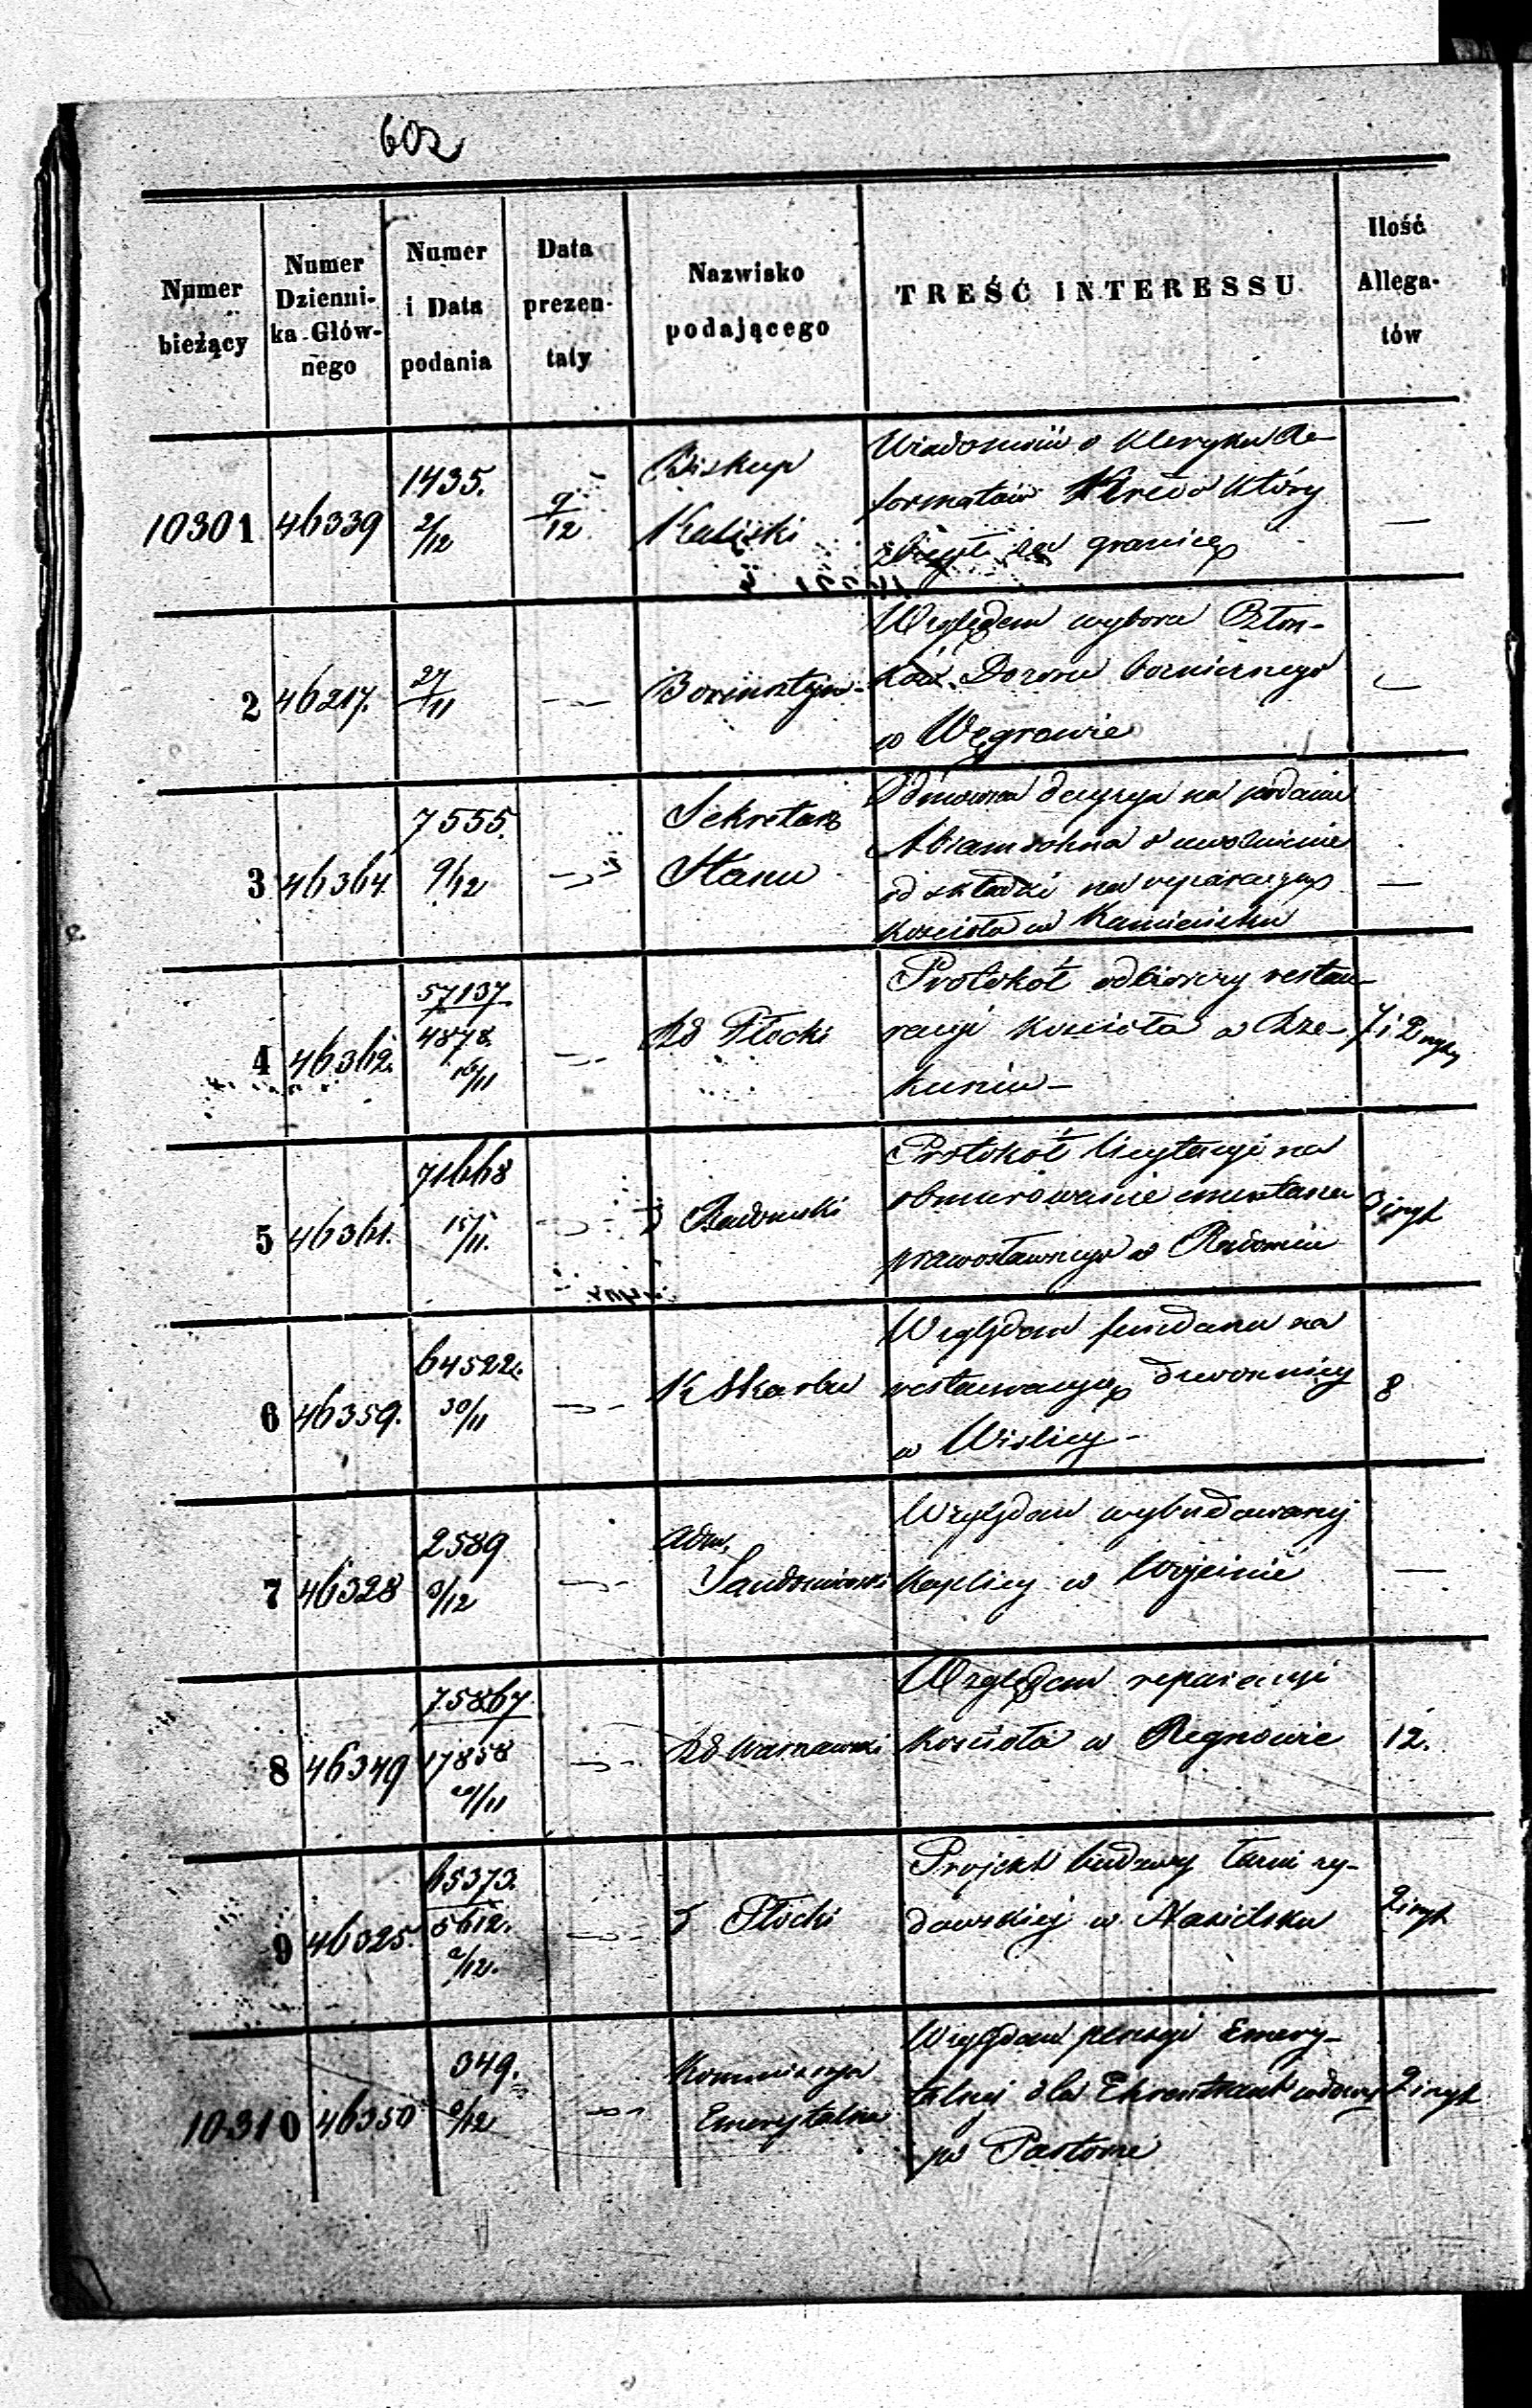 602
Numer bieżący
Numer Dzienni- ka Głów- nego
Numer i Data podania
Data prezen- taty
Nazwisko podającego
TREŚĆ INTERESSU
Ilość Allega- tów
10301 46339 1435. 2/12 9/12 Biskup Kaliski
Wiadomość o kleryku Re-
formatów który
zbiegł za granicę
—
2 46217. 27/11 — Borensztejn
Względem wyboru Człon-
ków Dozoru bozniczego
w Węgrowie
—
3 46364. 7555. 9/12 — Sekretarz Stanu
Odmowna decyzya na podanie
Abramsohna o uwolnienie
od składki na reparacyę
kościoła w Kamieńsku
—
4 46362. 57137 4878 16/11 — Rd Płocki
Protokół odbiorczy restau-
racyi kościoła w Rze-
kuniu —
7 i 2 rysy
5 46361. 71668 15/11. — Radomski
Protokół licytacyi na
obmurowanie cmentarza
prawosławnego w Radomiu
6 46359. 64522. 30/11 — K Skarbu
Względem funduszu na
restauracyę dzwonnicy
w Wiślicy —
8
7 46328 2589 3/12 — Adm. Sandomierski
Względem wybudowanej
kaplicy w
—
8 46349 75867. 17858 20/11 — Rd Warszawski
Względem reparacyi
kościoła w Regnowie
12.
9 46325. 65373. 5612. 2/12. — Płocki
Projekt budowy łaźni ży-
dowskiej w Nasielsku
2 i rys
10310 46350 349. /12 — Kommissya Emerytalna
Względem pensyi Emery-
talnej dla wdowy
po Pastorze
2 i rys